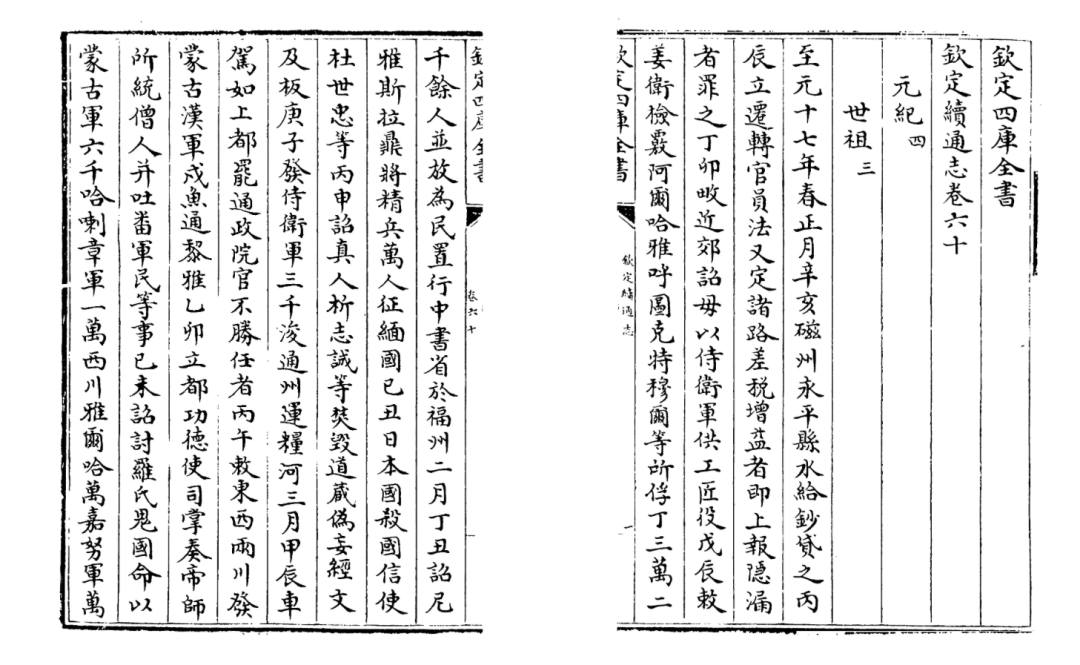 欽定四庫全書
欽定續通志卷六十
元紀四
世祖三
至元十七年春正月辛亥磁州永平縣水給鈔貸之丙
辰立遷轉官員法又定諸路差税增益者即上報隱漏
者罪之丁卯畋近郊詔毋以侍衛軍供工匠役戊辰敕
姜衛檢覈阿爾哈雅呼圖克特穆爾等所俘丁三萬二
欽定四庫全書
欽定續通志
一
欽定四庫全書
卷六十
千餘人並放為民置行中書省於福州二月丁丑詔尼
雅斯拉鼎將精兵萬人征緬國已丑日本國殺國信使
杜世忠等丙申詔真人祈志誠等焚毀道藏偽妄經文
及板庚子發侍衛軍三千浚通州運糧河三月甲辰車
駕如上都罷通政院官不勝任者丙午敕東西兩川發
蒙古漢軍戍魚通黎雅乙卯立都功德使司掌奏帝師
所統僧人并吐番軍民等事已未詔討羅氏鬼國命以
蒙古軍六千哈喇章軍一萬西川雅爾哈萬嘉努軍萬